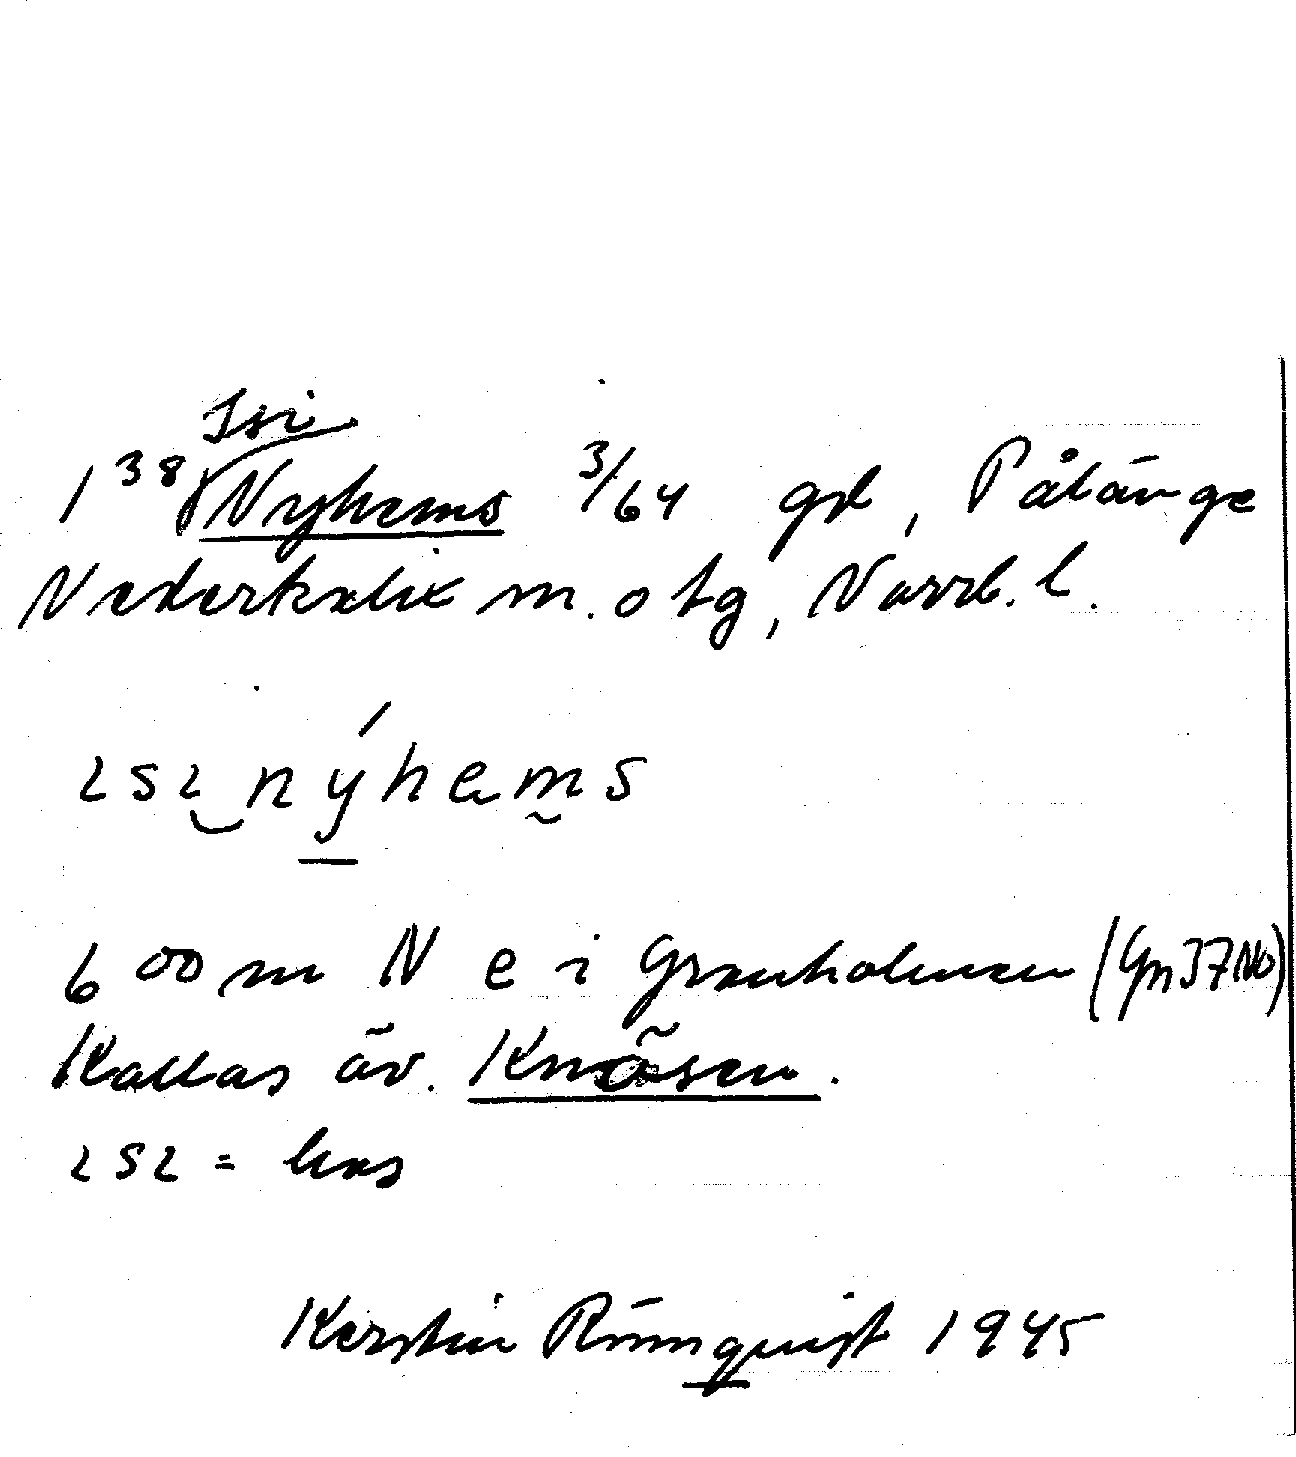 Isi
1³⁸ Nyhems 3/64 gd, Pålänge
Nederkalix m. o tg, Norrb. l.
ısı nýhems
600 m N e i Granholmen (Gn37No)
Kallas äv. Knösen.
ısı = hus
Kerstin Rönnquist 1945